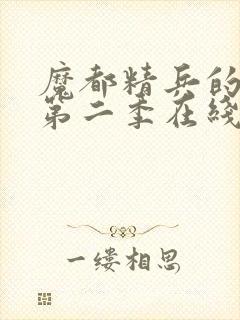 魔都精兵的
第二季在线
一缕相思